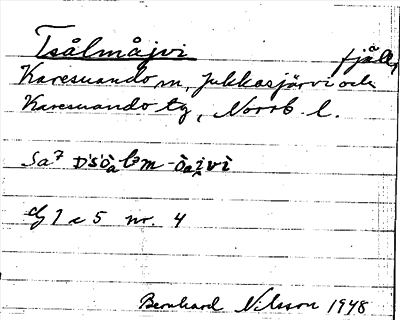 Tsålmåjvi fjäll,
Karesuando sn, Jukkasjärvi och
Karesuando tg, Norrb. l.
Sa⁷
1 c 5 nr. 4
Bernhard Nilsson 1948